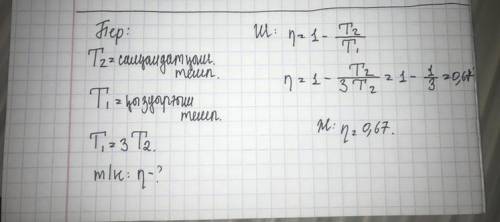 Бер:
T₂ = салқындатқыш
темп.
T₁ = қыздырғыш
темп.
T₁ = 3T₂.
т/к: η - ?
Ш: η = 1 - T₂/T₁
η = 1 - T₂/3T₂ = 1 - 1/3 = 0,67
Ж: η = 0,67.